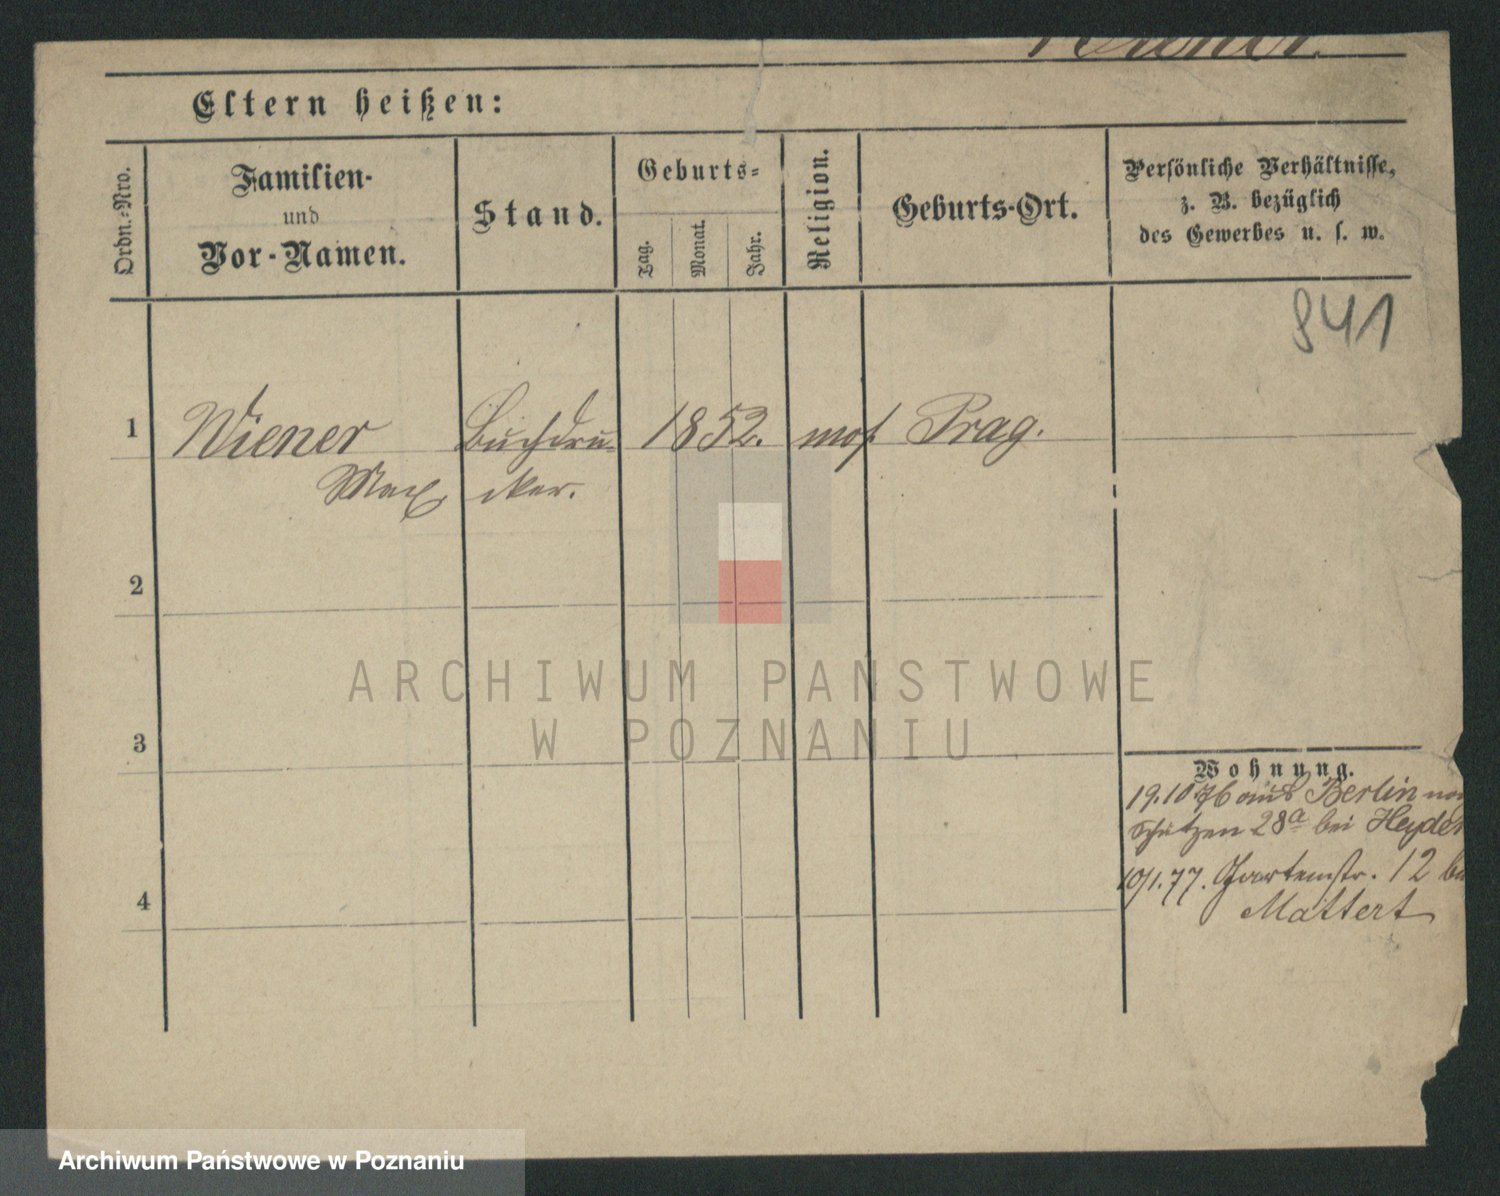 Eltern heißen:
Ordn.-Nro.
Familien-
und
Vor-Namen.
Stand.
Geburts-
Tag.
Monat.
Jahr.
Religion.
Geburts-Ort.
Persönliche Verhältnisse,
z. B. bezüglich
des Gewerbes u. s. w.
841
1 Wiener Buchdru- 1852. mos. Prag.
Max, cker.
2
3
4
Wohnung.
19.10.76 aus Berlin
Schützen 28a bei Heyder
10/1.77. Gartenstr. 12
Mattert
ARCHIWUM PAŃSTWOWE
W POZNANIU
Archiwum Państwowe w Poznaniu